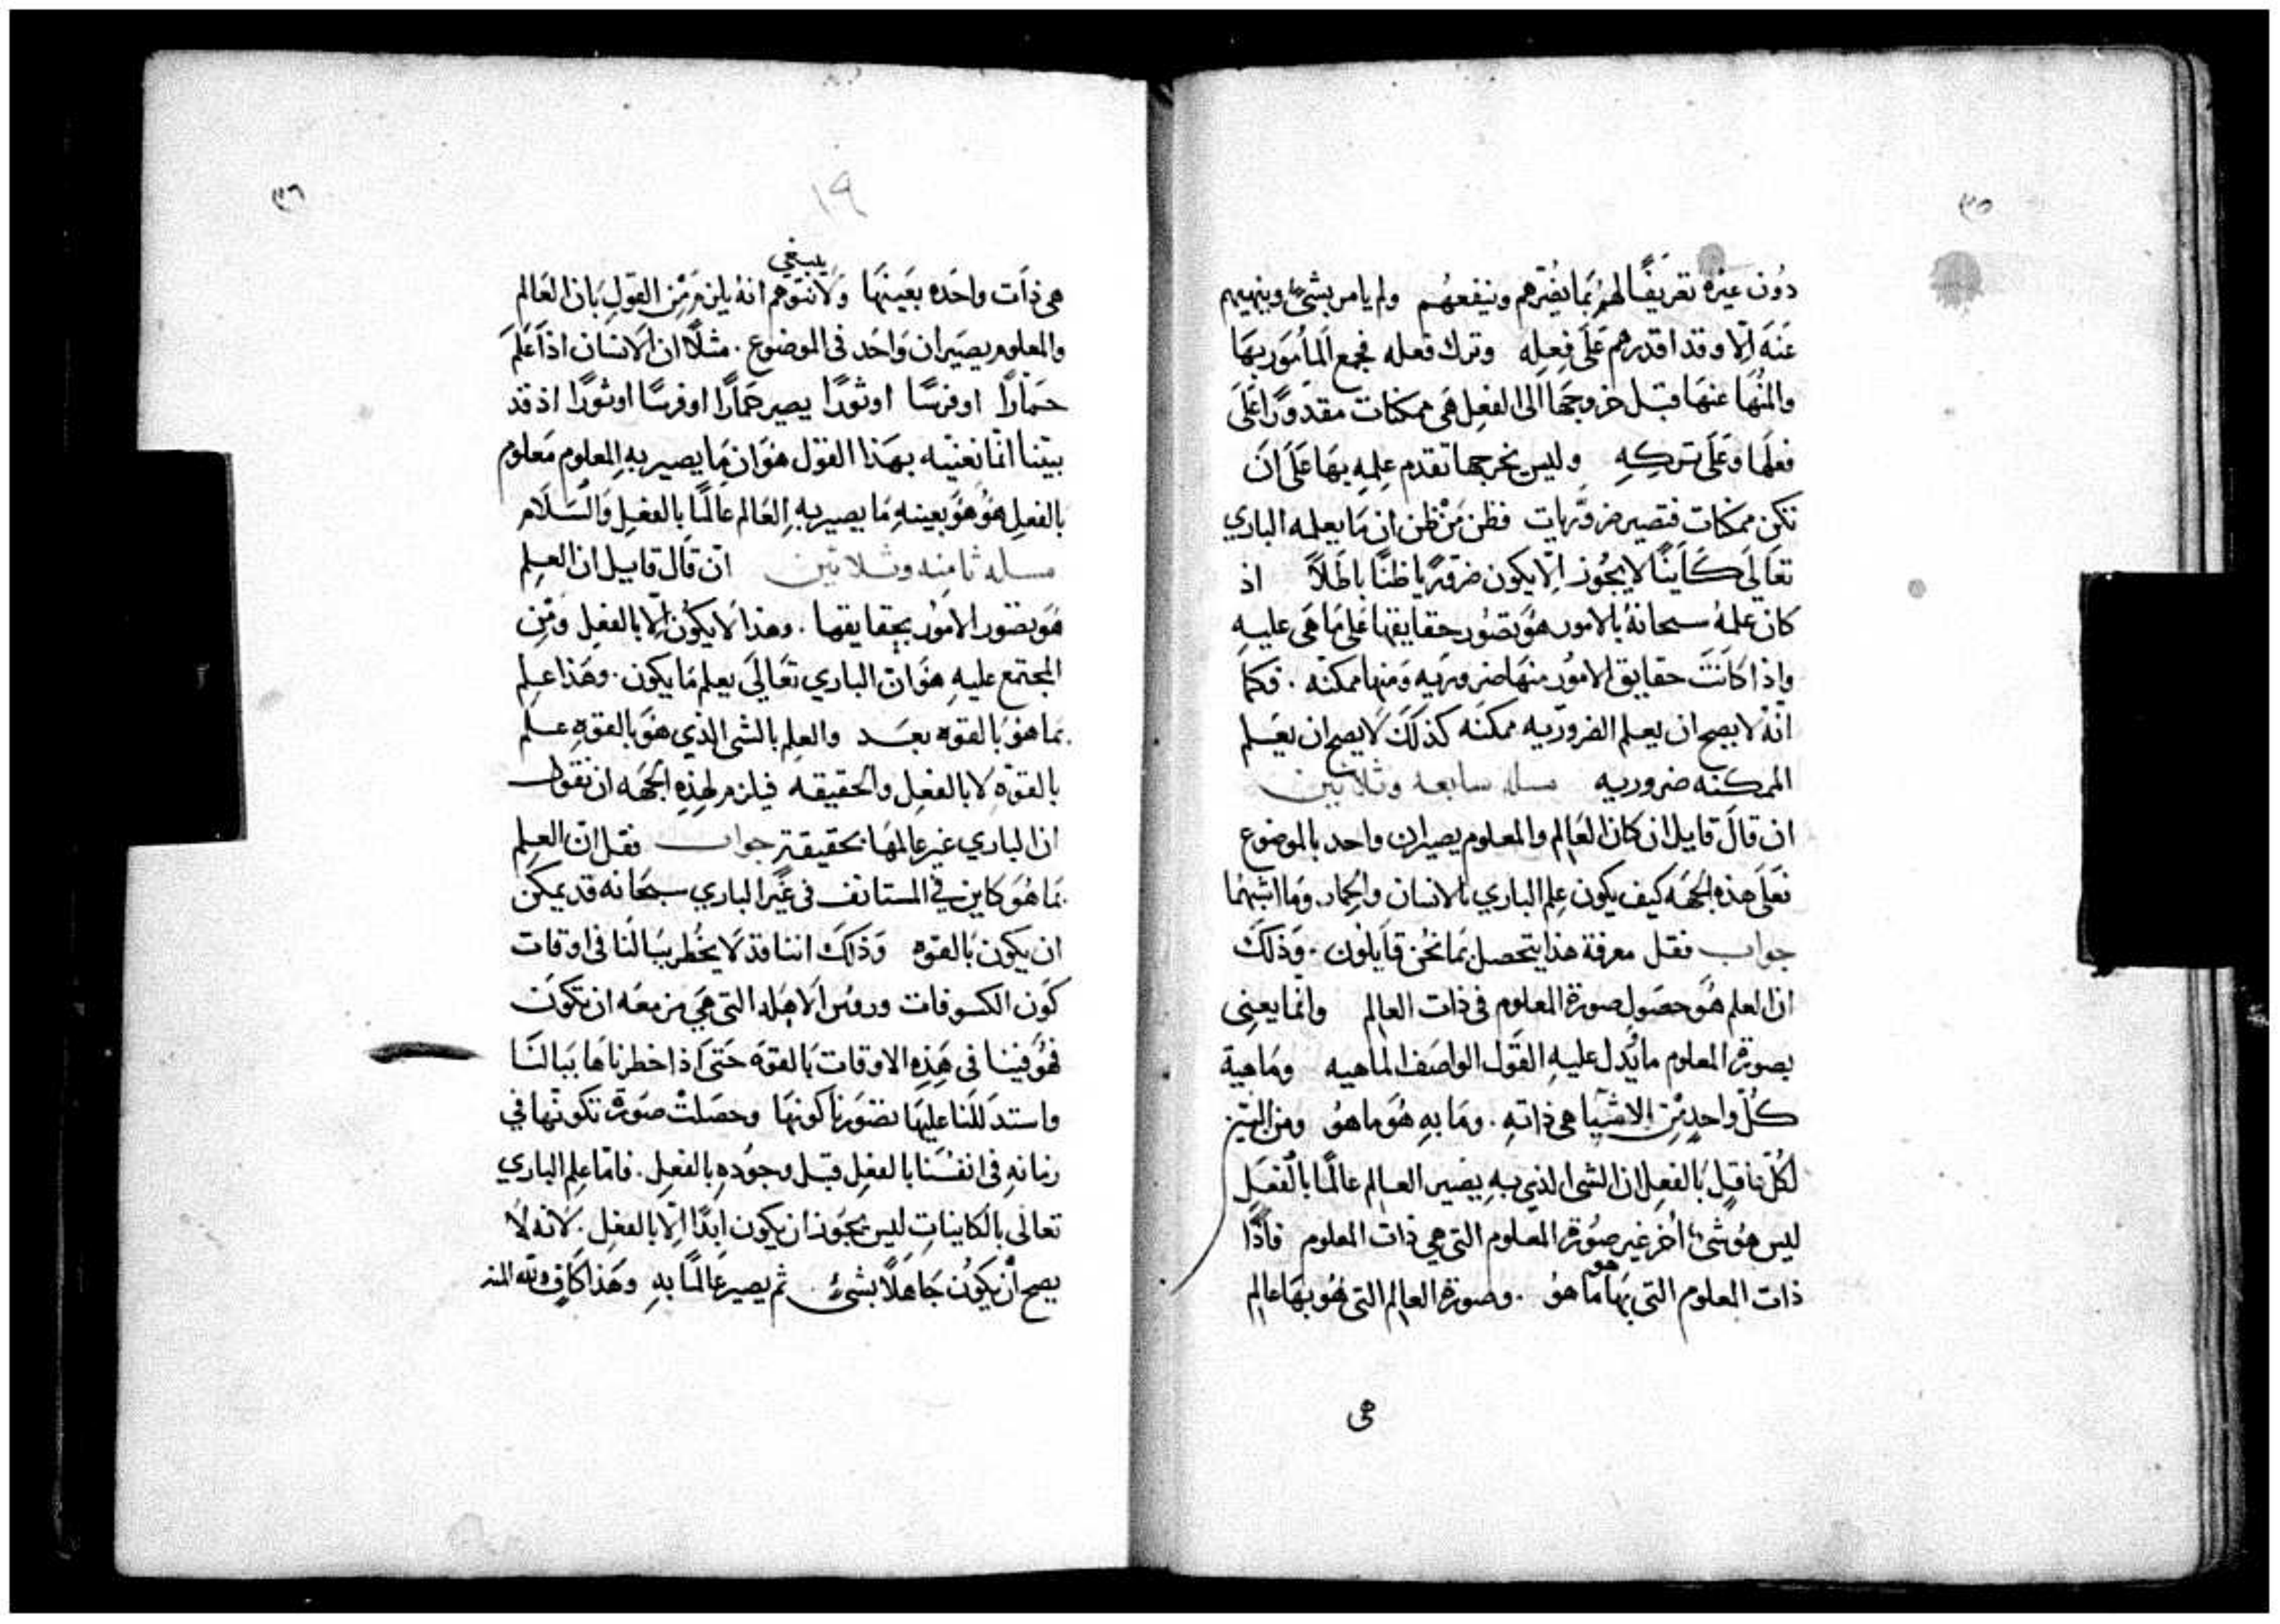 ٣٥
دُون غيره تعريفًا لهم بما يضرهم وينفعهم ولم يامر بشيء وينهيهم
عنه الّا وقد اقدرهم على فعله وترك فعله فجمع المأمور بها
والمنها عنها قبل خروجها الى الفعل هي ممكنات مقدورًا على
فعلها وعلى تركه وليس يخرجها تقدم علمه بها على ان
تكن ممكنات فتصير ضروريات فظن من ظن ان ما يعلمه الباري
تعالى كاينًا لا يجوز الّا يكون ضروريا ظنًا باطلاً اذ
كان علمه سبحانه بالامور هو تصور حقايقها على ما هي عليه
واذا كانت حقايق الامور منها ضروريه ومنها ممكنه . فكما
انّه لا يصح ان يعلم الضروريه ممكنه كذلك لا يصح ان يعلم
الممكنه ضروريه مسله سابعه وثلاثين
ان قال قايل ان كان العالم والمعلوم يصيران واحد بالموضوع
فعلى هذه الجهه كيف يكون علم الباري بالانسان والحمار وما اشبهما
جواب فقل معرفة هذا يتحصل بما نحن قايلون . وذلك
ان العلم هو حصول صورة المعلوم في ذات العالم وانما يعني
بصورة المعلوم ما يدل عليه القول الواصف لماهيه وماهية
كل واحد من الاشيا هي ذاته . وما به هو ما هو ومن البيّن
لكل عاقل بالفعل ان الشي الذي به يصير العالم عالمًا بالفعل
ليس هو شيء اخر غير صورة المعلوم التي هي ذات المعلوم فاذًا
ذات المعلوم التي بها هو ما هو . وصورة العالم التي هو بها عالم
هى
٣٦
١٩
هي ذات واحده بعينها ولا ينبغي نتوهم انه يلزم من القول بان العالم
والمعلوم يصيران واحد في الموضوع . مثلًا ان الانسان اذا علم
حمارًا او فرسًا او ثورًا يصير حمارًا او فرسًا او ثورًا اذ قد
بيّنا انما نعنيه بهذا القول هو ان ما يصير به المعلوم معلوم
بالفعل هو هو بعينه ما يصير به العالم عالمًا بالفعل والسلام
مسله ثامنه وثلاثين ان قال قايل ان العلم
هو تصور الامور بحقايقها . وهذا لا يكون الّا بالفعل ومن
المجتمع عليه هو ان الباري تعالى يعلم ما يكون . وهذا علم
بما هو بالقوه بعد والعلم بالشي الذي هو بالقوه علم
بالقوّه لا بالفعل والحقيقه فيلزم لهذه الجهه ان نقول
ان الباري غير عالمها بحقيقته جواب فقل ان العلم
بما هو كاين في المستانف في غير الباري سبحانه قد يمكن
ان يكون بالقوه وذلك اننا قد لا يخطر ببالنا في اوقات
كون الكسوفات وروس الاهله التي هي مزمعه ان تكون
فهو فينا في هذه الاوقات بالقوه حتى اذا اخطرناها ببالنا
واستدللنا عليها تصورنا كونها وحصلت صورة تكونها في
زمانه في انفسنا بالفعل قبل وجوده بالفعل . فامّا علم الباري
تعالى بالكاينات ليس يجوز ان يكون ابدًا الّا بالفعل . لانه لا
يصح أن يكون جاهلاً بشيء ثم يصير عالمًا به وهذا كاف ولله المنه